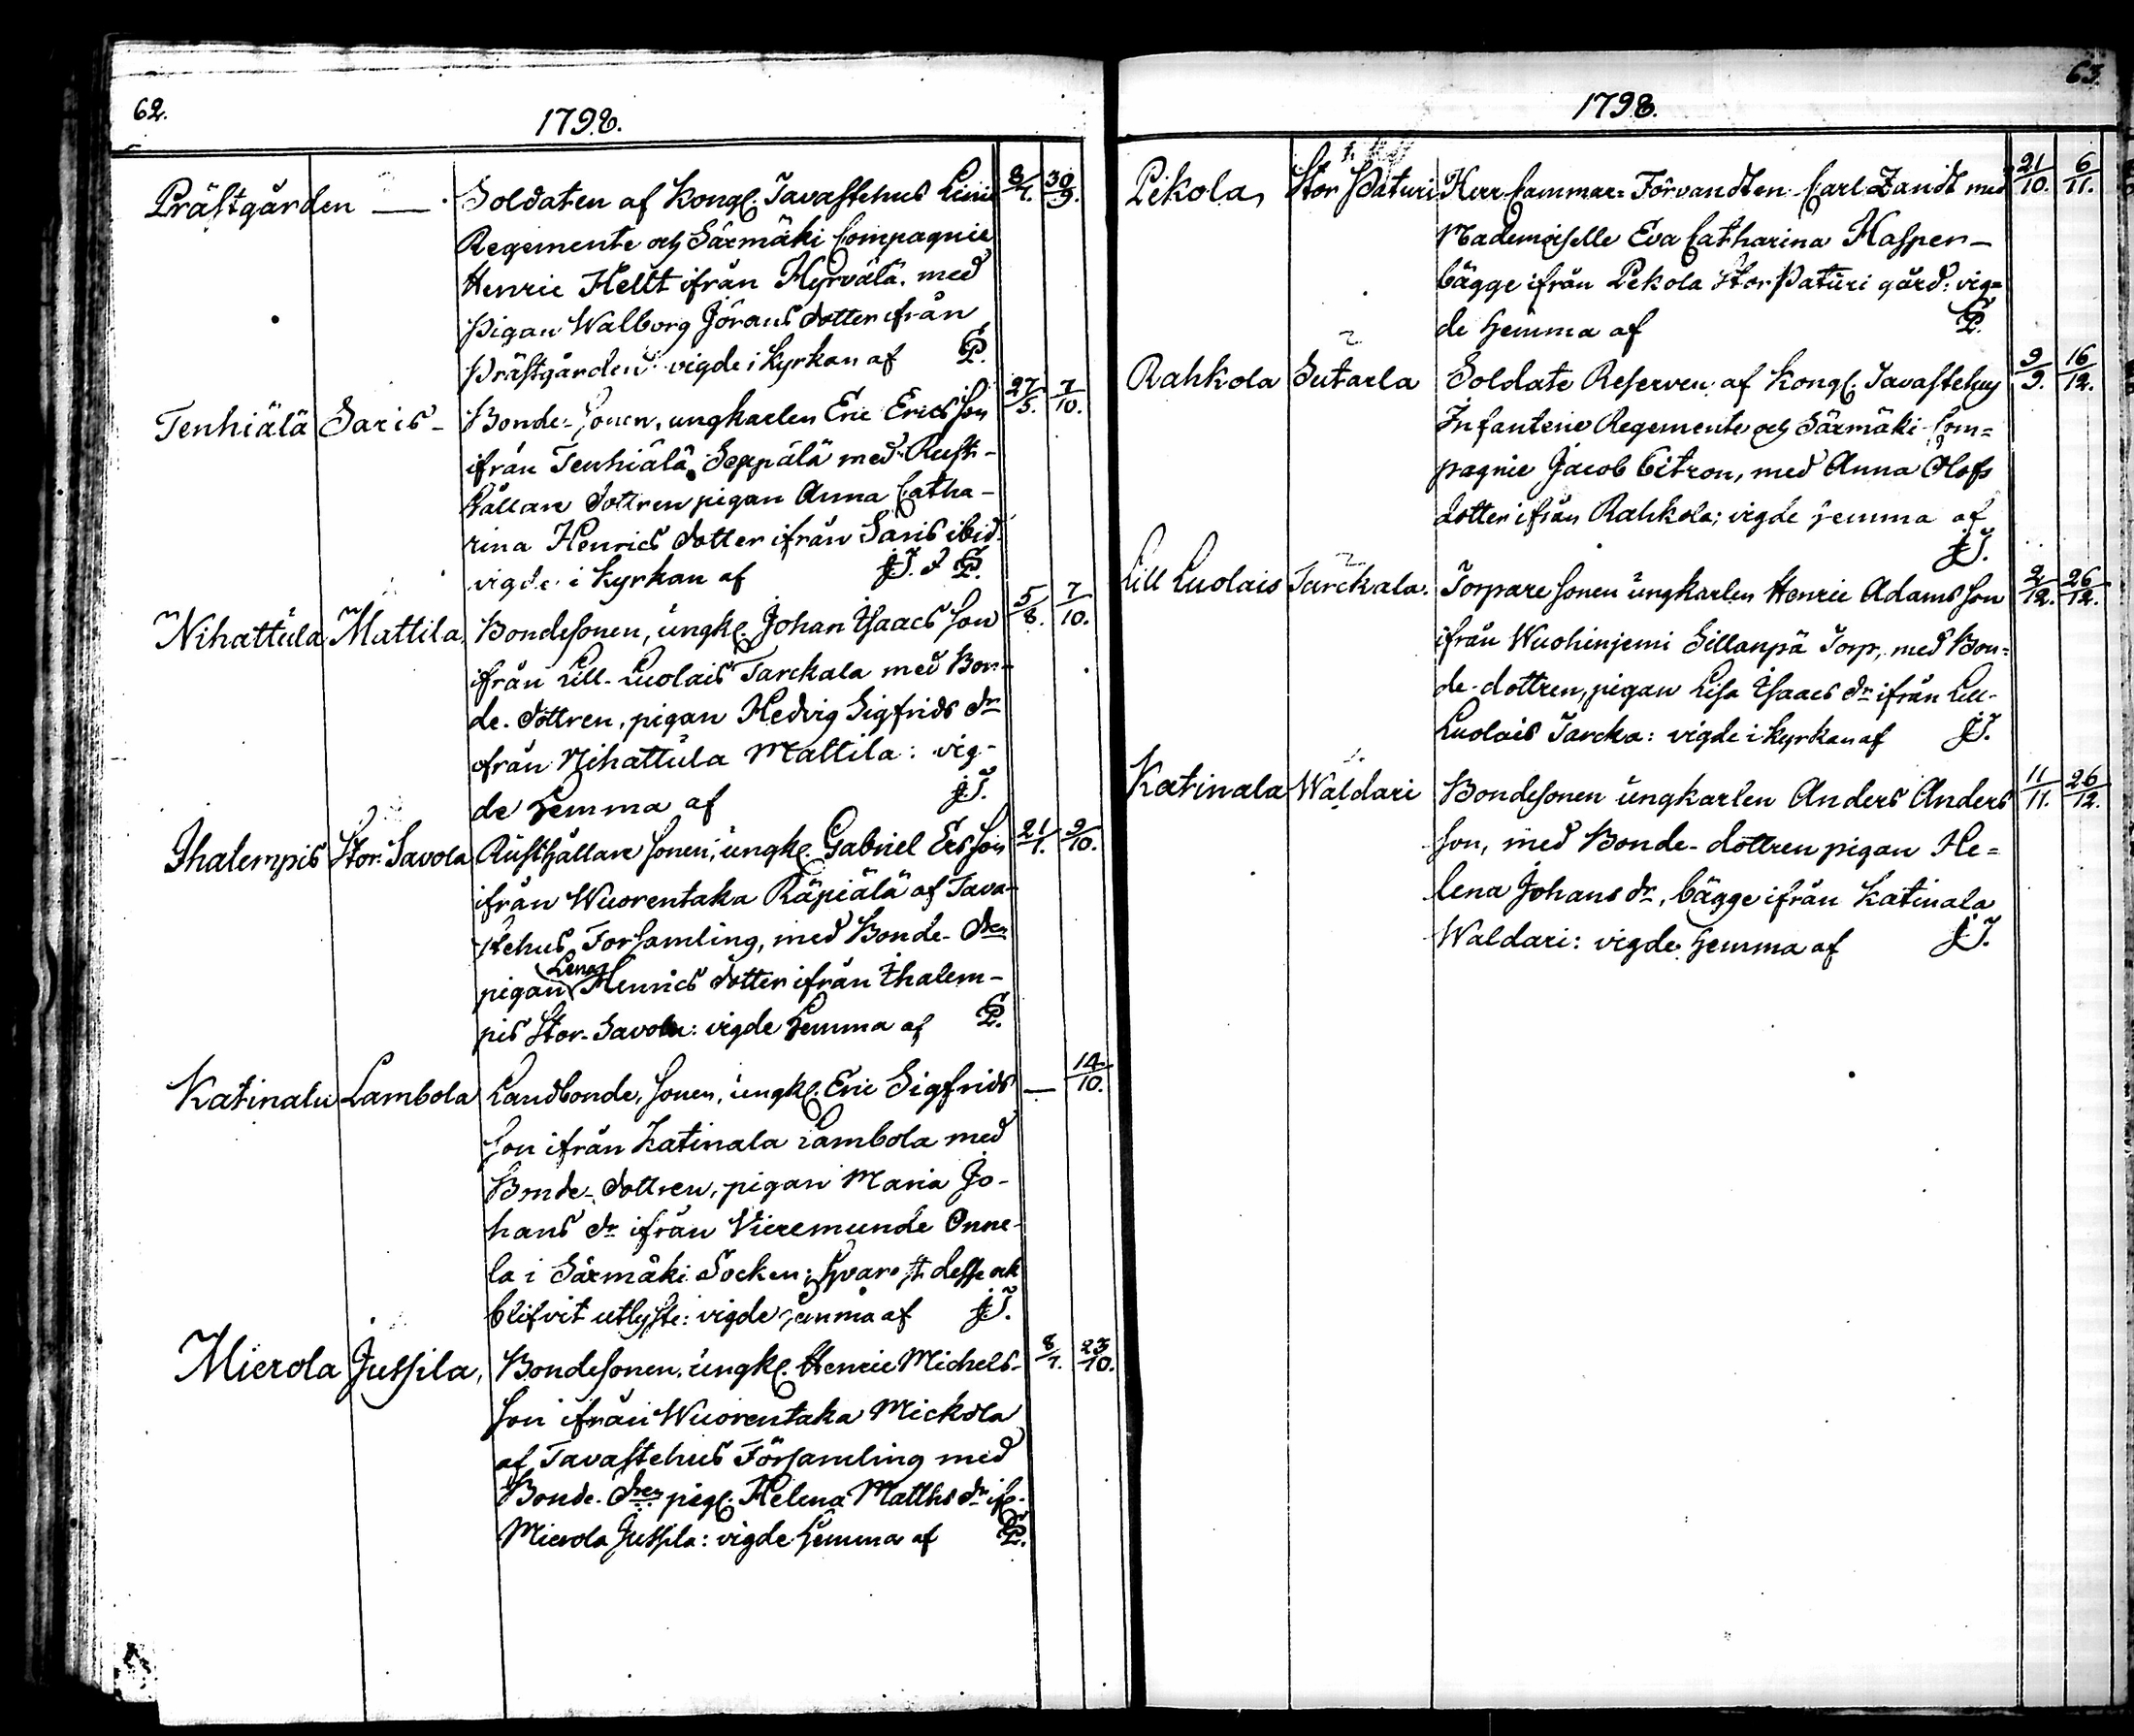 62.
1798.
Prästgården — Soldaten af Kongl. Tavastehus Linie 8/7. 30/9.
Regemente och Säxmäki Compagnie
Henric Hellt ifrån Hyrvälä. med
Pigan Walborg Jörans dotter ifrån
Prästgården: vigde i Kyrkan af
Tenhiälä Saris - Bonde-Sonen, ungkarlen Eric Ericsson 27/5. 7/10.
ifrån Tenhiälä Seppälä med Rust-
hållare dottren pigan Anna Catha-
rina Henrics dotter ifrån Saris ibid.
vigde i Kyrkan af
Nihattula Mattila, Bondesonen, ungkl. Johan Isaacs Son 5/8. 7/10.
ifrån Lill-Luolais Tarckala med Bon-
de-dottren, pigan Hedvig Sigfrids dr
ifrån Nihattula Mattila: vig-
de hemma af JJ.
Ihalempis Stor-Savola Rusthållare Sonen, ungkl. Gabriel Ers Son 21/7. 9/10.
ifrån Wuorentaka Räpiälä af Tava-
stehus Församling, med Bonde-dren
pigan Lena Henrics dotter ifrån Ihalem-
pis Stor-Savola: vigde hemma af
Katinala Lambola Landbonde, Sonen, ungkl. Eric Sigfrids — 14/10.
Son ifrån Katinala Lambola med
Bonde-dottren, pigan Maria Jo-
hans dr ifrån Vieremunde Onne-
la i Säxmäki Socken; hvarest desse ock
blifvit utlyste: vigde hemma af JJ.
Mierola Jussila, Bondesonen, ungkl. Henric Michels- 8/7. 23/10.
Son ifrån Wuorentaka Mickola
af Tavastehus Församling med
Bonde-dren pigl. Helena Matths dr ifr.
Mierola Jussila: vigde hemma af
63.
1798.
Pekola, Stor Paturi Herr Cammar-Förvandten Carl Zandt med 21/10. 6/11.
Mademoiselle Eva Catharina Hasper-
bägge ifrån Pekola Stor Paturi gård: vig-
de hemma af
Rahkola Sutarla Soldate Reserven af Kongl. Tavastehus 9/9. 16/12.
Infanterie Regemente och Säxmäki Com-
pagnie Jacob Citron, med Anna Olofs
dotter ifrån Rahkola; vigde hemma af
JJ.
Lill Luolais Tarckala. Torpare Sonen ungkarlen Henric Adams Son 2/12. 26/12.
ifrån Wuohinjemi Sillanpä Torp, med Bon-
de-dottren, pigan Lisa Isaacs dr ifrån Lill-
Luolais Tarcka: vigde i kyrkan af JJ.
Katinala Waldari Bondesonen ungkarlen Anders Anders 11/11. 26/12.
Son, med Bonde-dottren pigan He-
lena Johans dr, bägge ifrån Katinala
Waldari: vigde hemma af JJ.